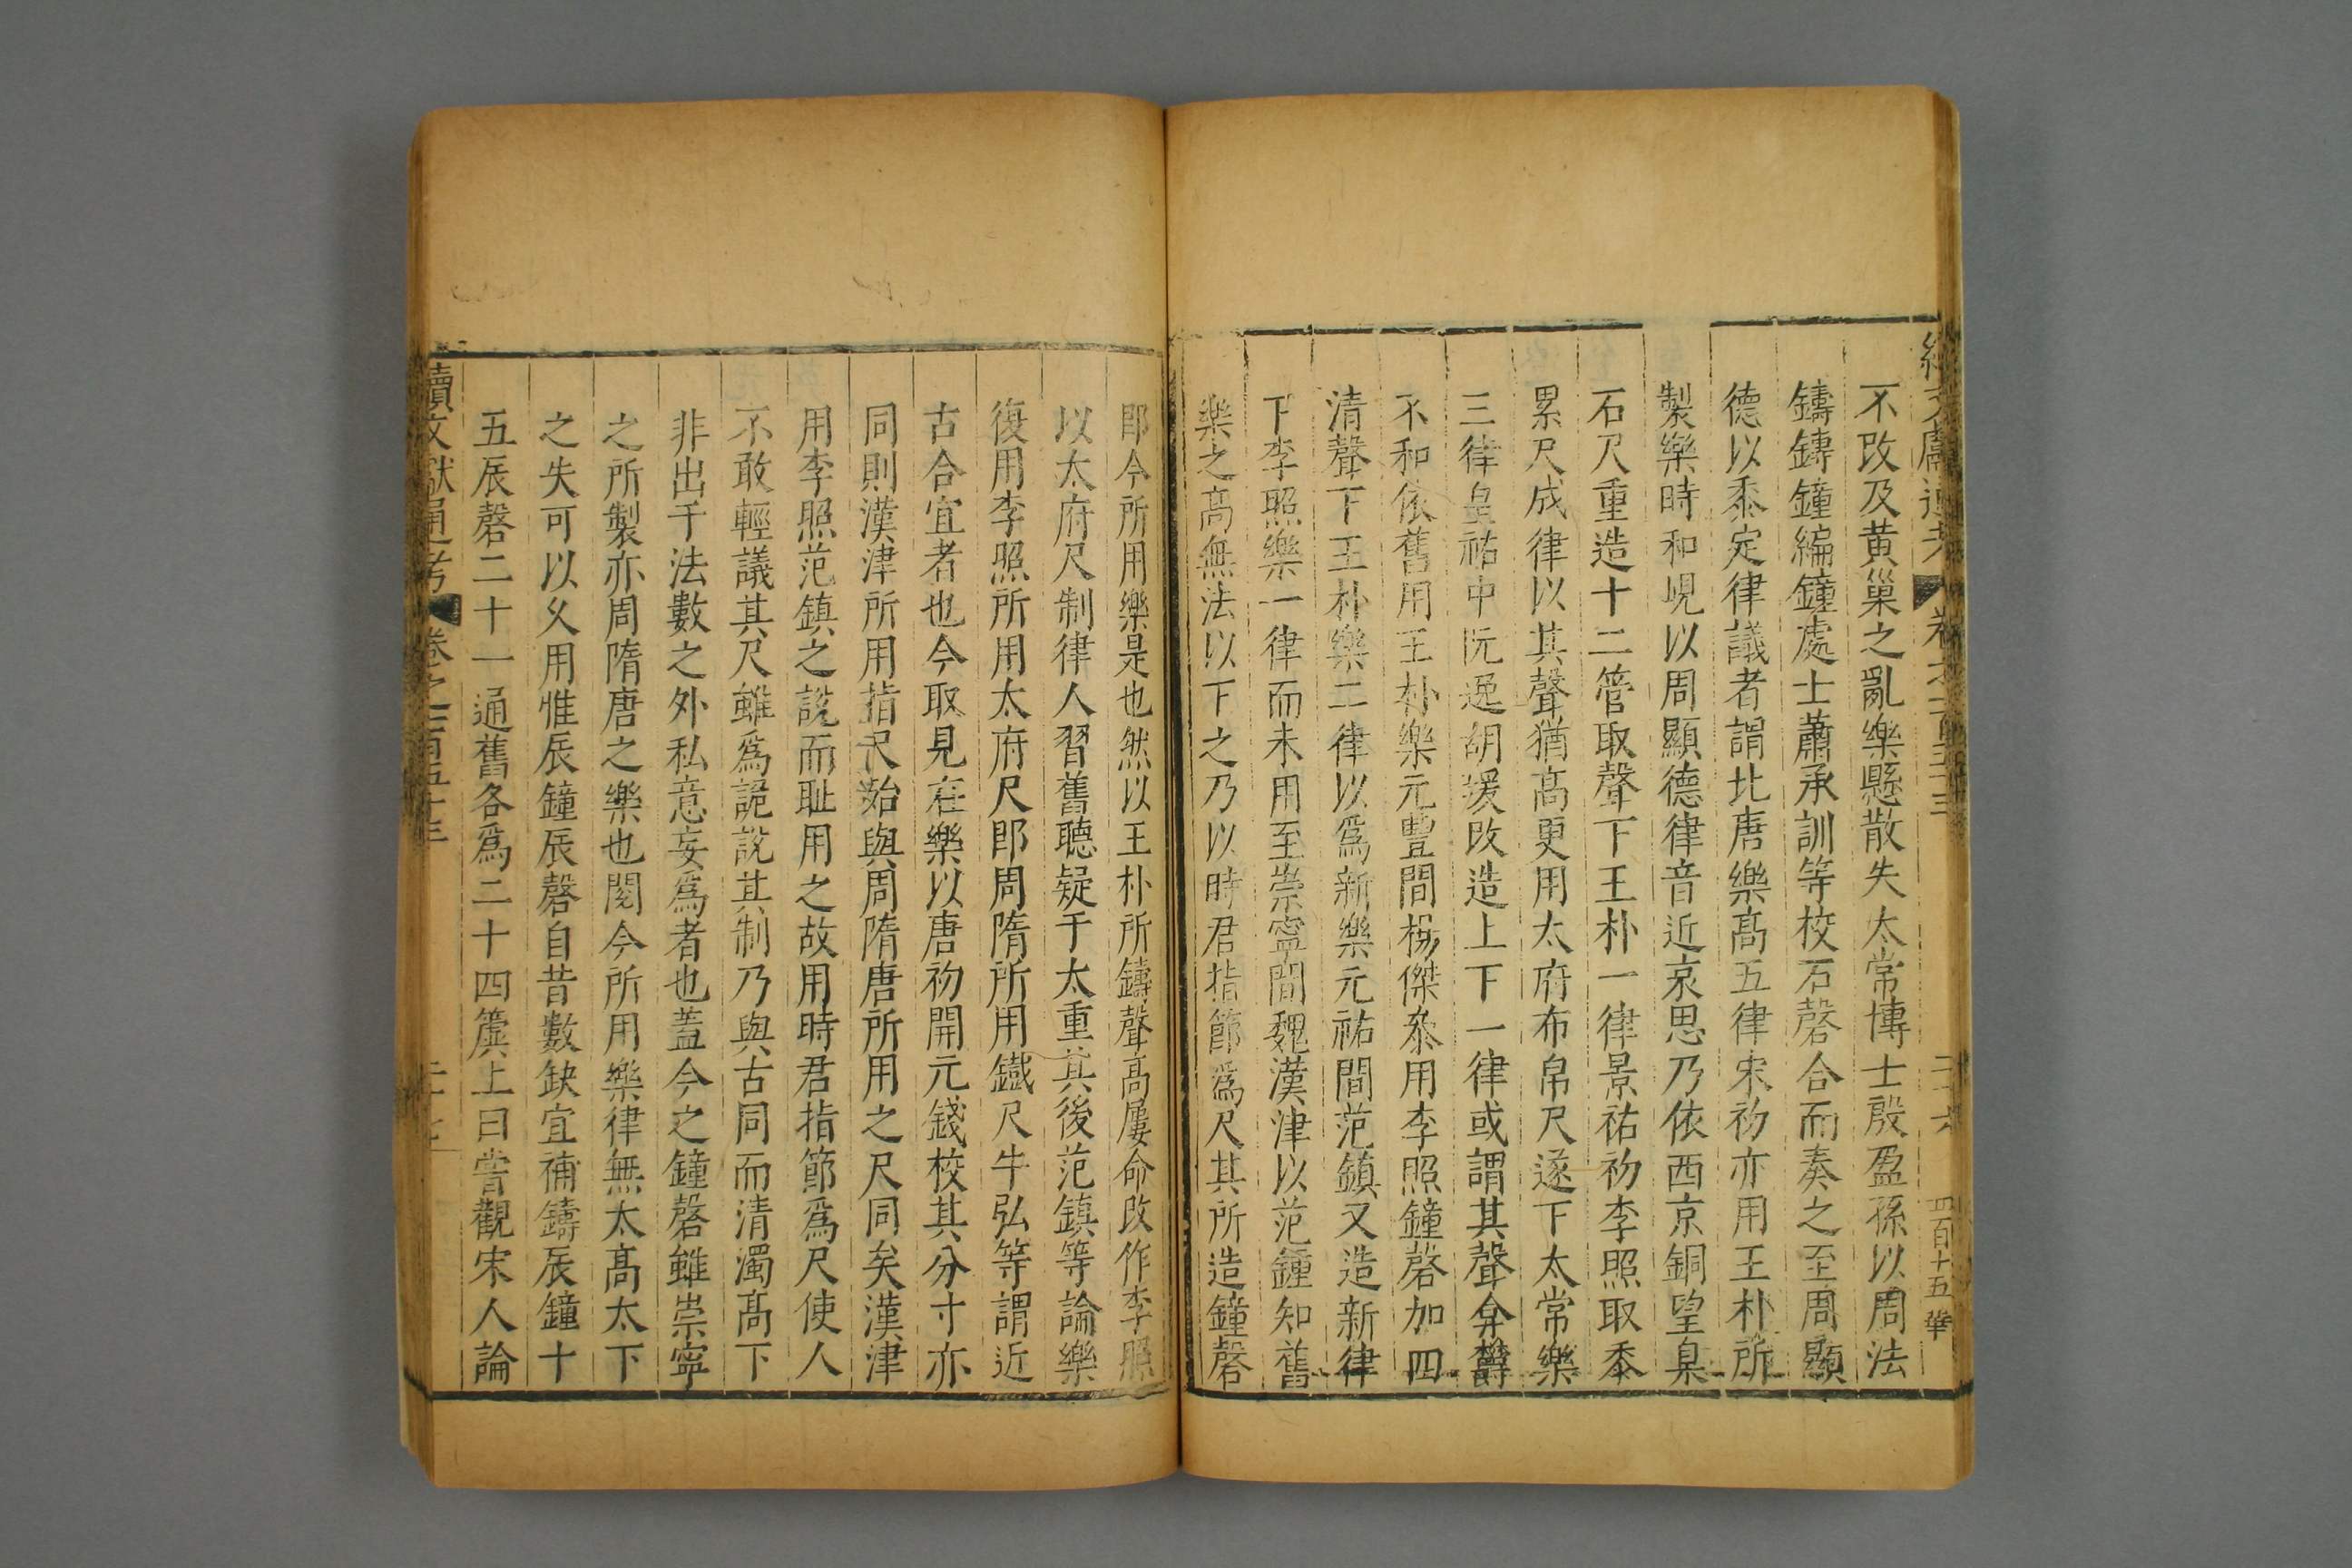 續文獻通考 卷之一百五十三 二十六 四百十五 華
不改及黃巢之亂樂懸散失太常博士殷盈孫以周法
鑄鎛鐘編鐘處士蕭承訓等校石磬合而奏之至周顯
德以黍定律議者謂比唐樂高五律宋初亦用王朴所
製樂時和峴以周顯德律音近哀思乃依西京銅望臬
石尺重造十二管取聲下王朴一律景祐初李照取黍
累尺成律以其聲猶高更用太府布帛尺遂下太常樂
三律皇祐中阮逸胡瑗改造上下一律或謂其聲弇欝
不和依舊用王朴樂元豐間楊傑叅用李照鐘磬加四
清聲下王朴樂二律以爲新樂元祐間范鎮又造新律
下李照樂一律而未用至崇寧間魏漢津以范鐘知舊
樂之高無法以下之乃以時君指節爲尺其所造鐘磬
即今所用樂是也然以王朴所鑄聲高屢命改作李照
以太府尺制律人習舊聽疑于太重其後范鎮等論樂
復用李照所用太府尺即周隋所用鐵尺牛弘等謂近
古合宜者也今取見在樂以唐初開元錢校其分寸亦
同則漢津所用指尺殆與周隋唐所用之尺同矣漢津
用李照范鎮之說而耻用之故用時君指節爲尺使人
不敢輕議其尺雖爲詭說其制乃與古同而清濁高下
非出于法數之外私意妄爲者也蓋今之鐘磬雖崇寧
之所製亦周隋唐之樂也閱今所用樂律無太高太下
之失可以久用惟辰鐘辰磬自昔數缺宜補鑄辰鐘十
五辰磬二十一通舊各爲二十四簴上曰嘗觀宋人論
續文獻通考 卷之一百五十三 二十七